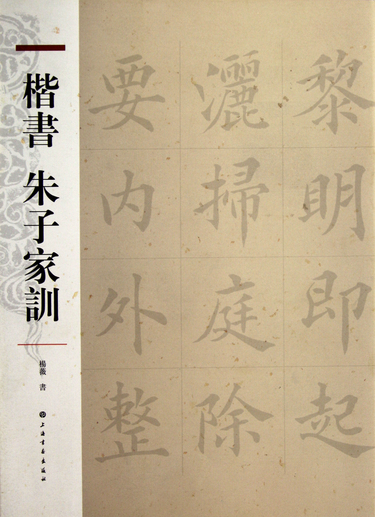 楷書 朱子家訓
楊薇 書
上海書畫出版社
黎明即起
灑掃庭除
要内外整